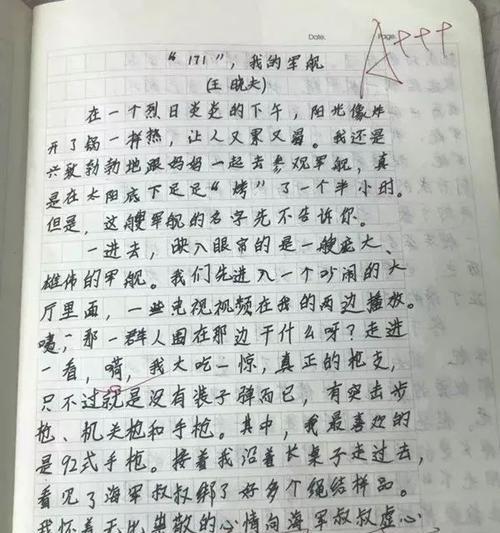 Date.
Page.
A+++
“171”，我的军舰
（王晓夫）
在一个烈日炎炎的下午，阳光像炸
开了锅一样热，让人又累又晕。我还是
兴致勃勃地跟妈妈一起去参观军舰，真
是在太阳底下足足“烤”了一个半小时。
但是，这艘军舰的名字先不告诉你。
一进去，映入眼帘的是一艘庞大、
雄伟的军舰。我们先进入一个吵闹的大
厅里面，一些电视视频在我的两边播放。
咦，那一群人围在那边干什么呀？走进
一看，嗬，我大吃一惊，真正的枪支，
只不过就是没有装子弹而已，有突击步
枪、机关枪和手枪。其中，我最喜欢的
是92式手枪。接着我沿着长桌子走过去，
看见了海军叔叔绑了好多个绳结样品。
我怀着无比崇敬的心情向海军叔叔虚心